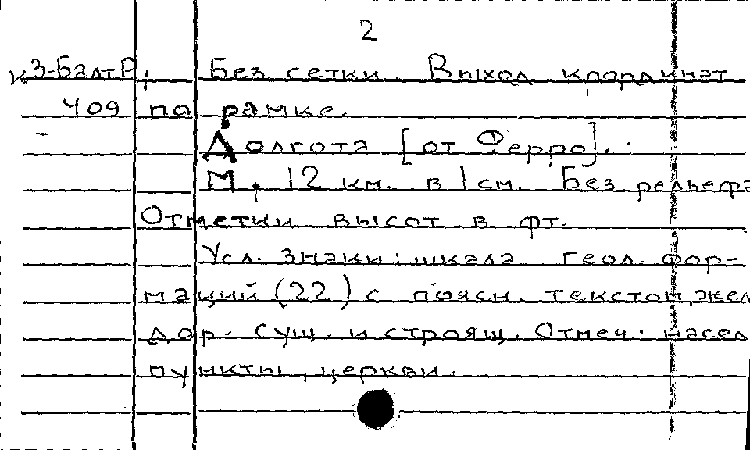 2
К3-БалтР, Без сетки. Выход координат
409 по рамке.
Долгота [от Ферро].
М. 12 км. в 1 см. Без рельефа
Отметки высот в фт.
Усл. знаки: шкала геол. фор-
маций (22) с поясн. текстом, жел
дор. сущ. и строящ. Отмеч. насел
пункты, церкви.